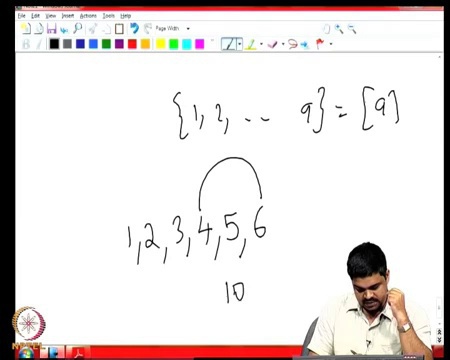 File Edit View Insert Actions Tools Help
Page Width
{1, 2, .. 9} = [9]
1, 2, 3, 4, 5, 6
10